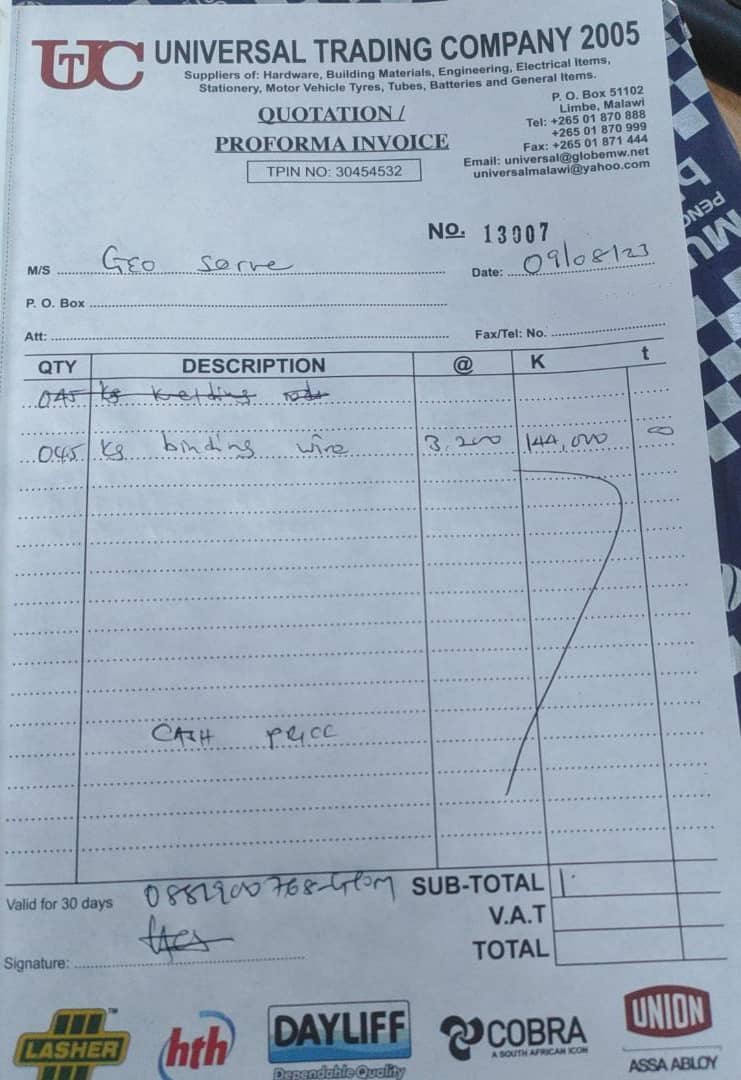 UTC UNIVERSAL TRADING COMPANY 2005
Suppliers of: Hardware, Building Materials, Engineering, Electrical Items,
Stationery, Motor Vehicle Tyres, Tubes, Batteries and General Items.
QUOTATION /
PROFORMA INVOICE
TPIN NO: 30454532
P. O. Box 51102
Limbe, Malawi
Tel: +265 01 870 888
+265 01 870 999
Fax: +265 01 871 444
Email: universal@globemw.net
universalmalawi@yahoo.com
No. 13007
M/S Geo Serve
Date: 09/08/23
P. O. Box
Att:
Fax/Tel: No.
QTY DESCRIPTION @ K t
045 kg welding rods
045 kg binding wire 3,200 144,000 00
CASH PRICE
Valid for 30 days
SUB-TOTAL
V.A.T
TOTAL
Signature:
LASHER™
hth
DAYLIFF
Dependable Quality
COBRA
A SOUTH AFRICAN ICON
UNION
ASSA ABLOY